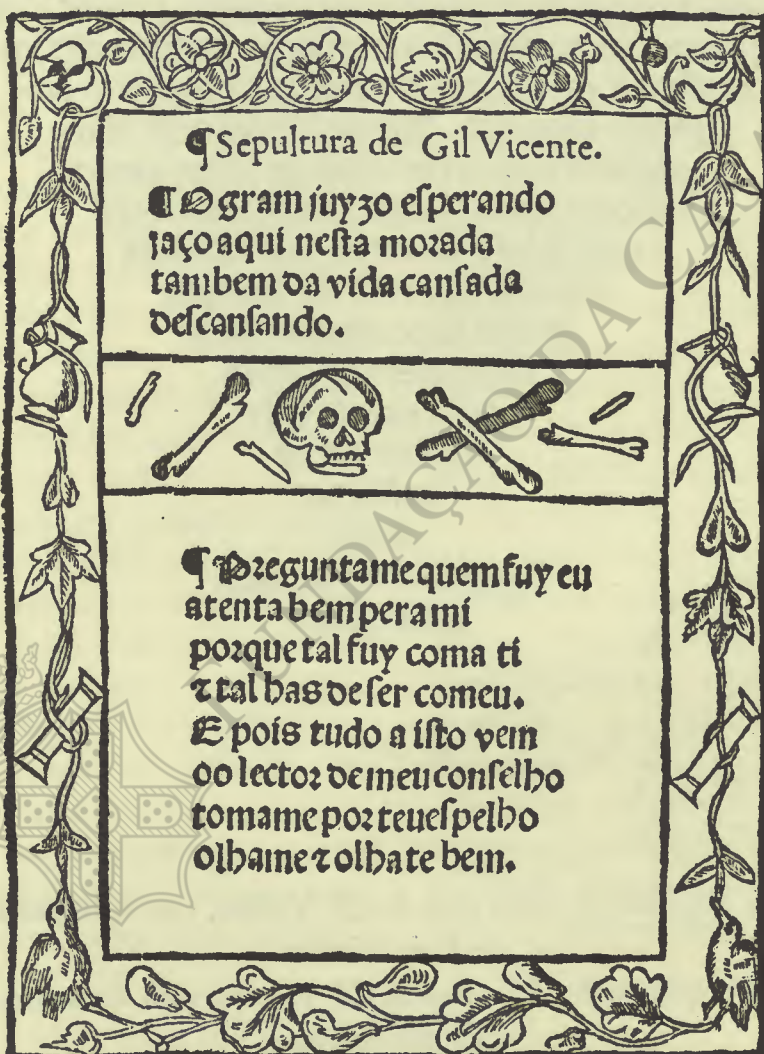 ¶Sepultura de Gil Vicente.
¶O gram juyzo eſperando
jaço aqui neſta morada
tambem da vida canſada
deſcanſando.
¶ Preguntame quem fuy eu
atenta bem pera mi
porque tal fuy coma ti
⁊ tal has de ſer comeu.
E pois tudo a iſto vem
oo lector de meu conſelho
tomame por teu eſpelho
olhame ⁊ olhate bem.
FUNDAÇÃO DA CAS